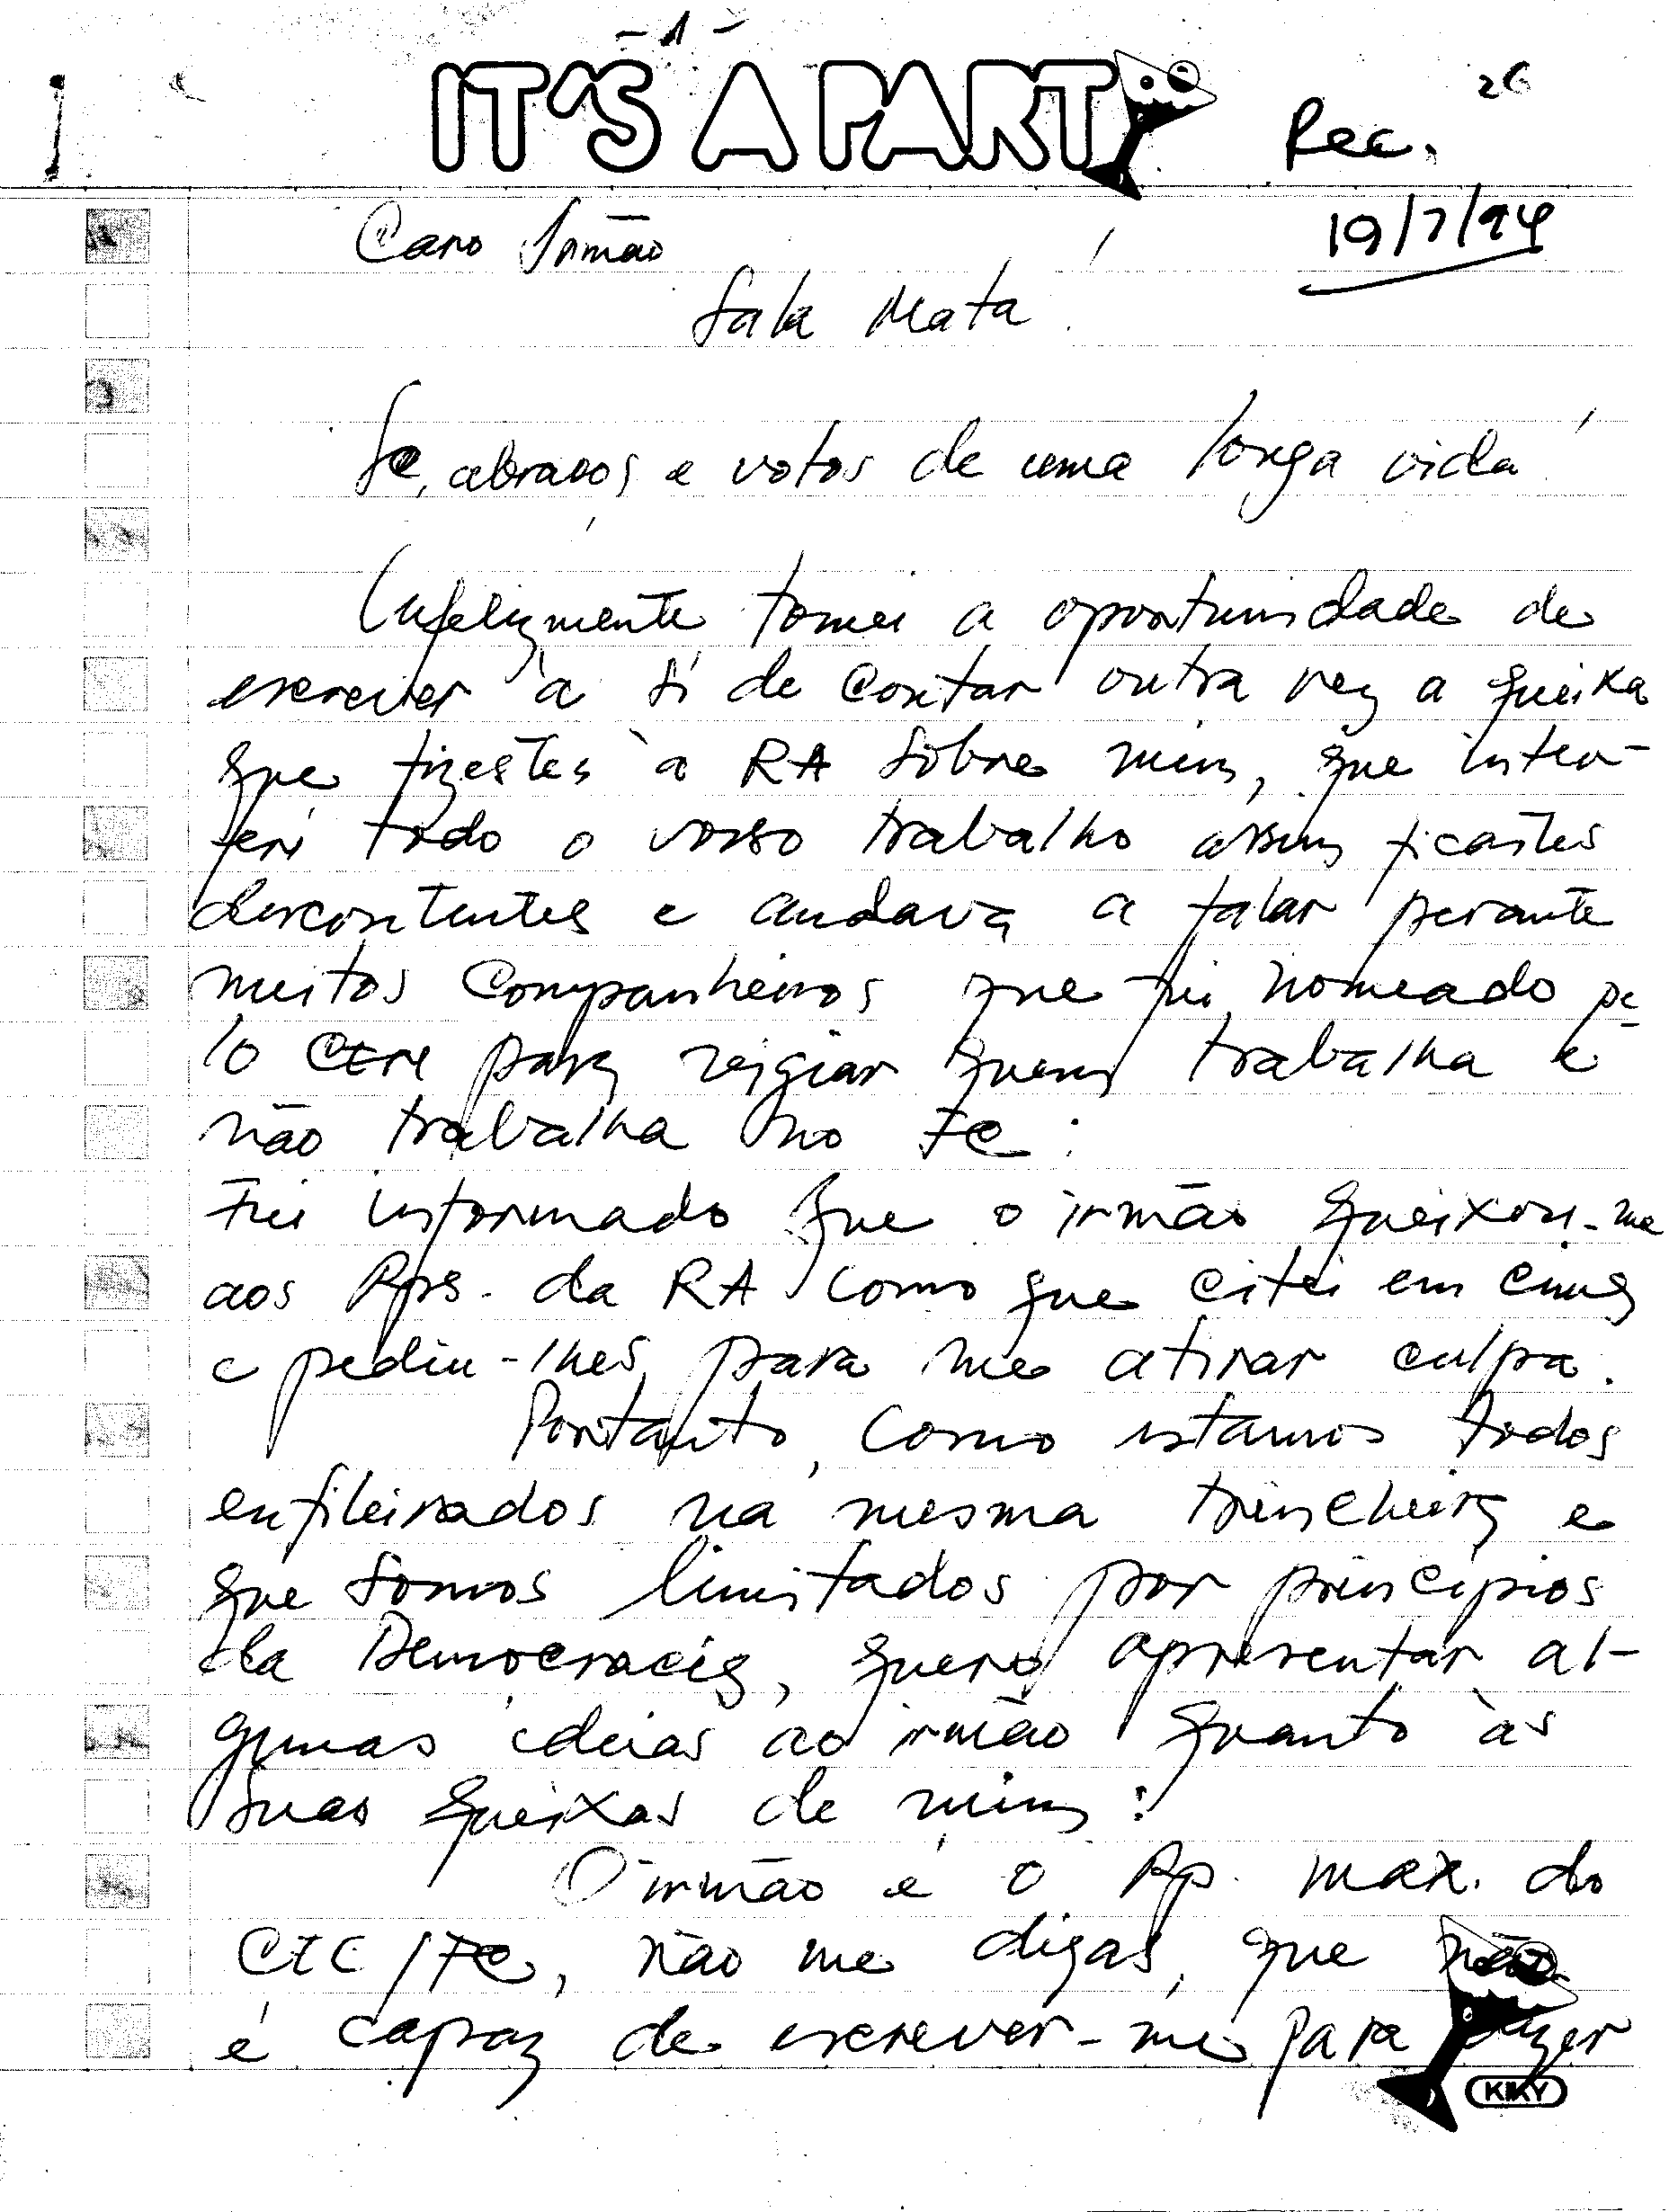 - 1 -
IT'S A PARTY
26
Rec.
19/7/94
Caro Irmão
Sala Mata!
Se, abraços e votos de uma longa vida!
Infelizmente tomei a oportunidade de
escrever à si de contar outra vez a queixa
que fizestes à RA sobre mim, que inter-
feri todo o vosso trabalho assim ficastes
descontentes e andava a falar perante
muitos companheiros que fui nomeado pe-
lo para vigiar quem trabalha e
não trabalha no FC:
Fui informado que o irmão queixou-me
aos Rps. da RA como que citei em cima
e pediu-lhes para me atirar culpa.
Portanto, como estamos todos
enfileirados na mesma trincheira e
que somos limitados por princípios
da Democracia, quero apresentar al-
gumas ideias ao irmão quanto às
suas queixas de mim:
O irmão é o Rp. max. do
CEC/FC, não me digas, que não
é capaz de escrever-me para dizer
KIKY